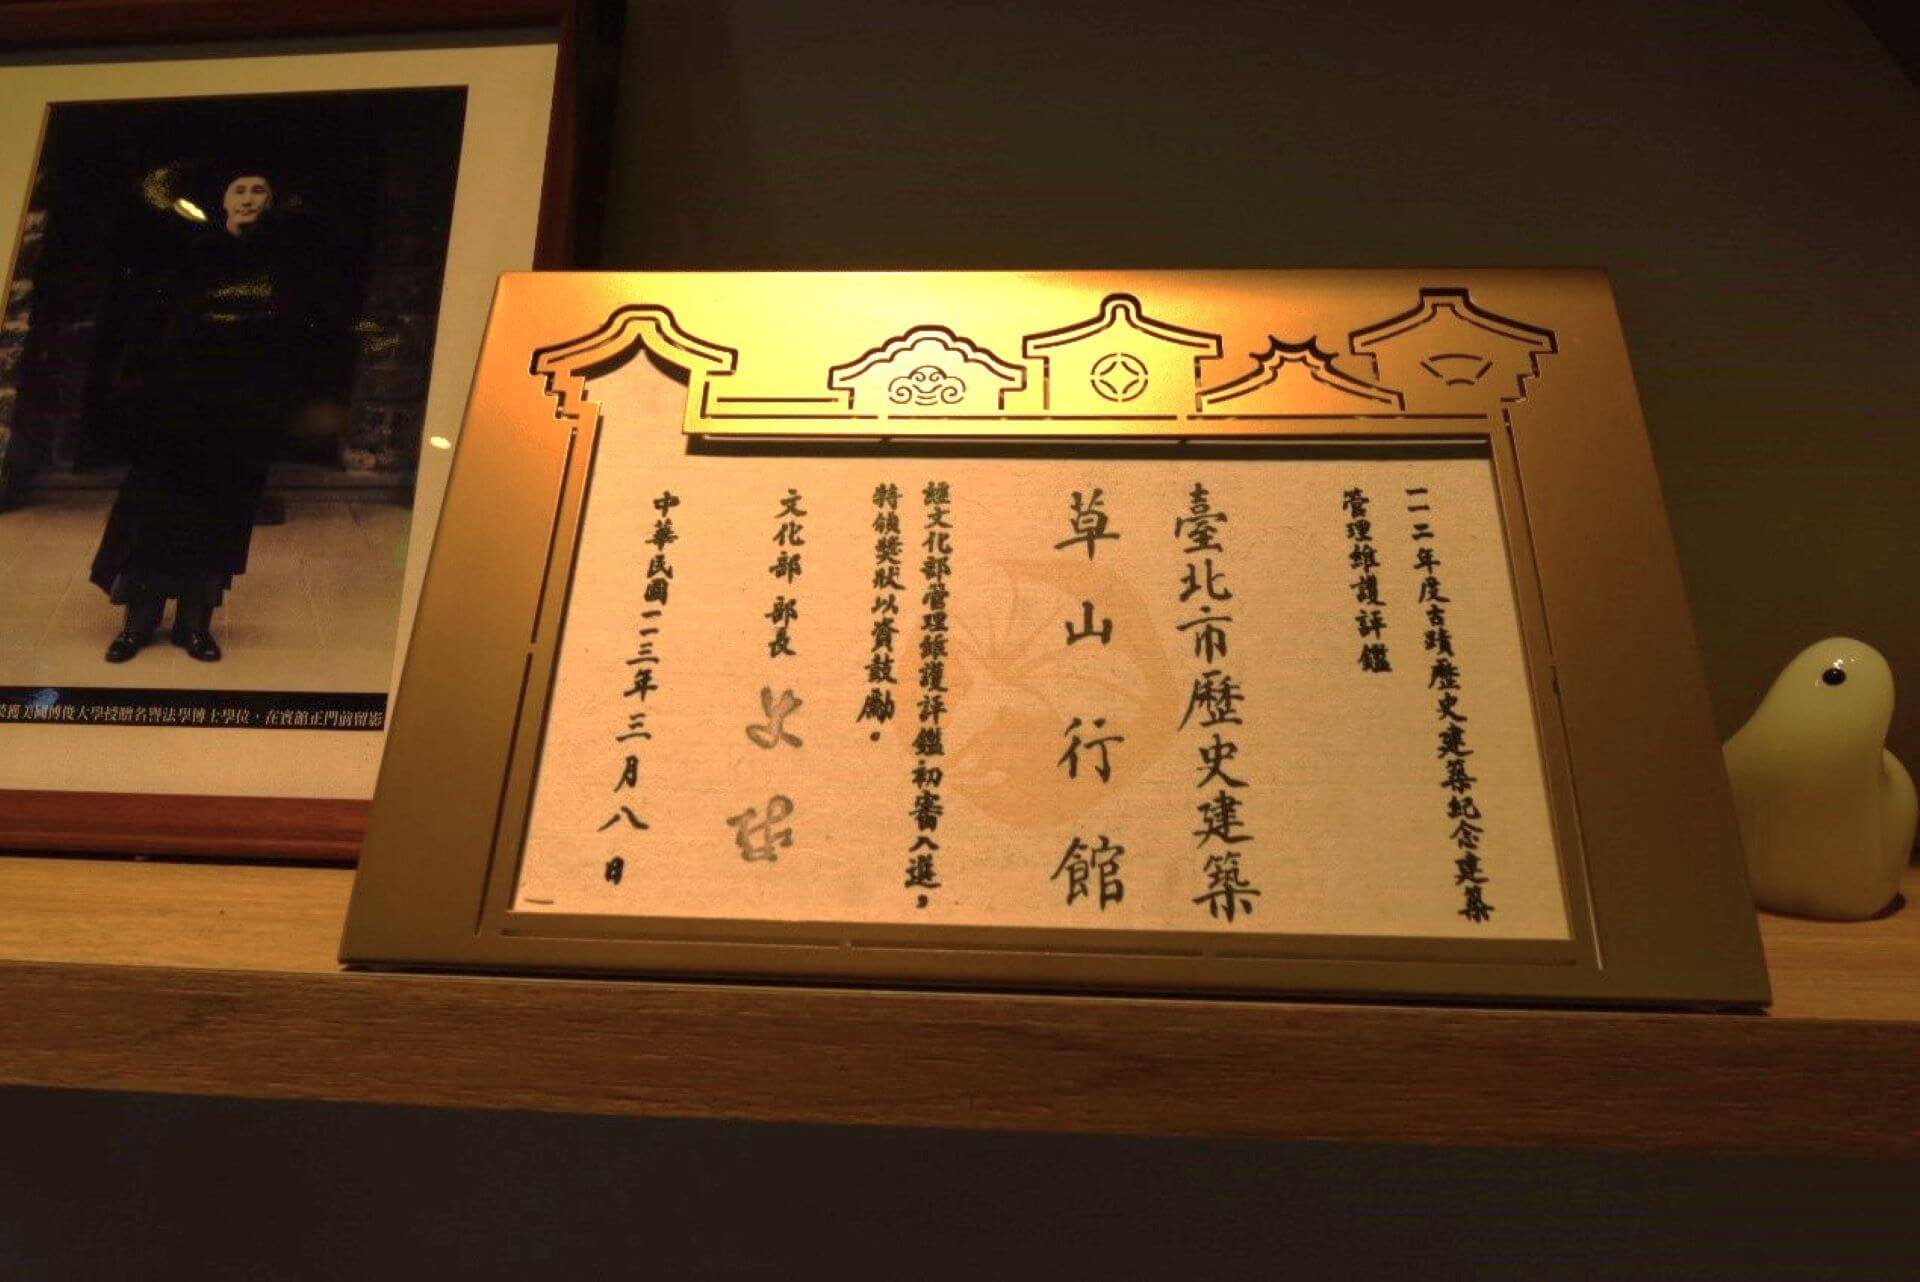 一一二年度古蹟歷史建築紀念建築
管理維護評鑑
臺北市歷史建築
草山行館
經文化部管理維護評鑑初審入選，
特頒獎狀以資鼓勵。
文化部 部長
中華民國一一三年三月八日
榮獲美國博俊大學授贈名譽法學博士學位，在賓館正門前留影